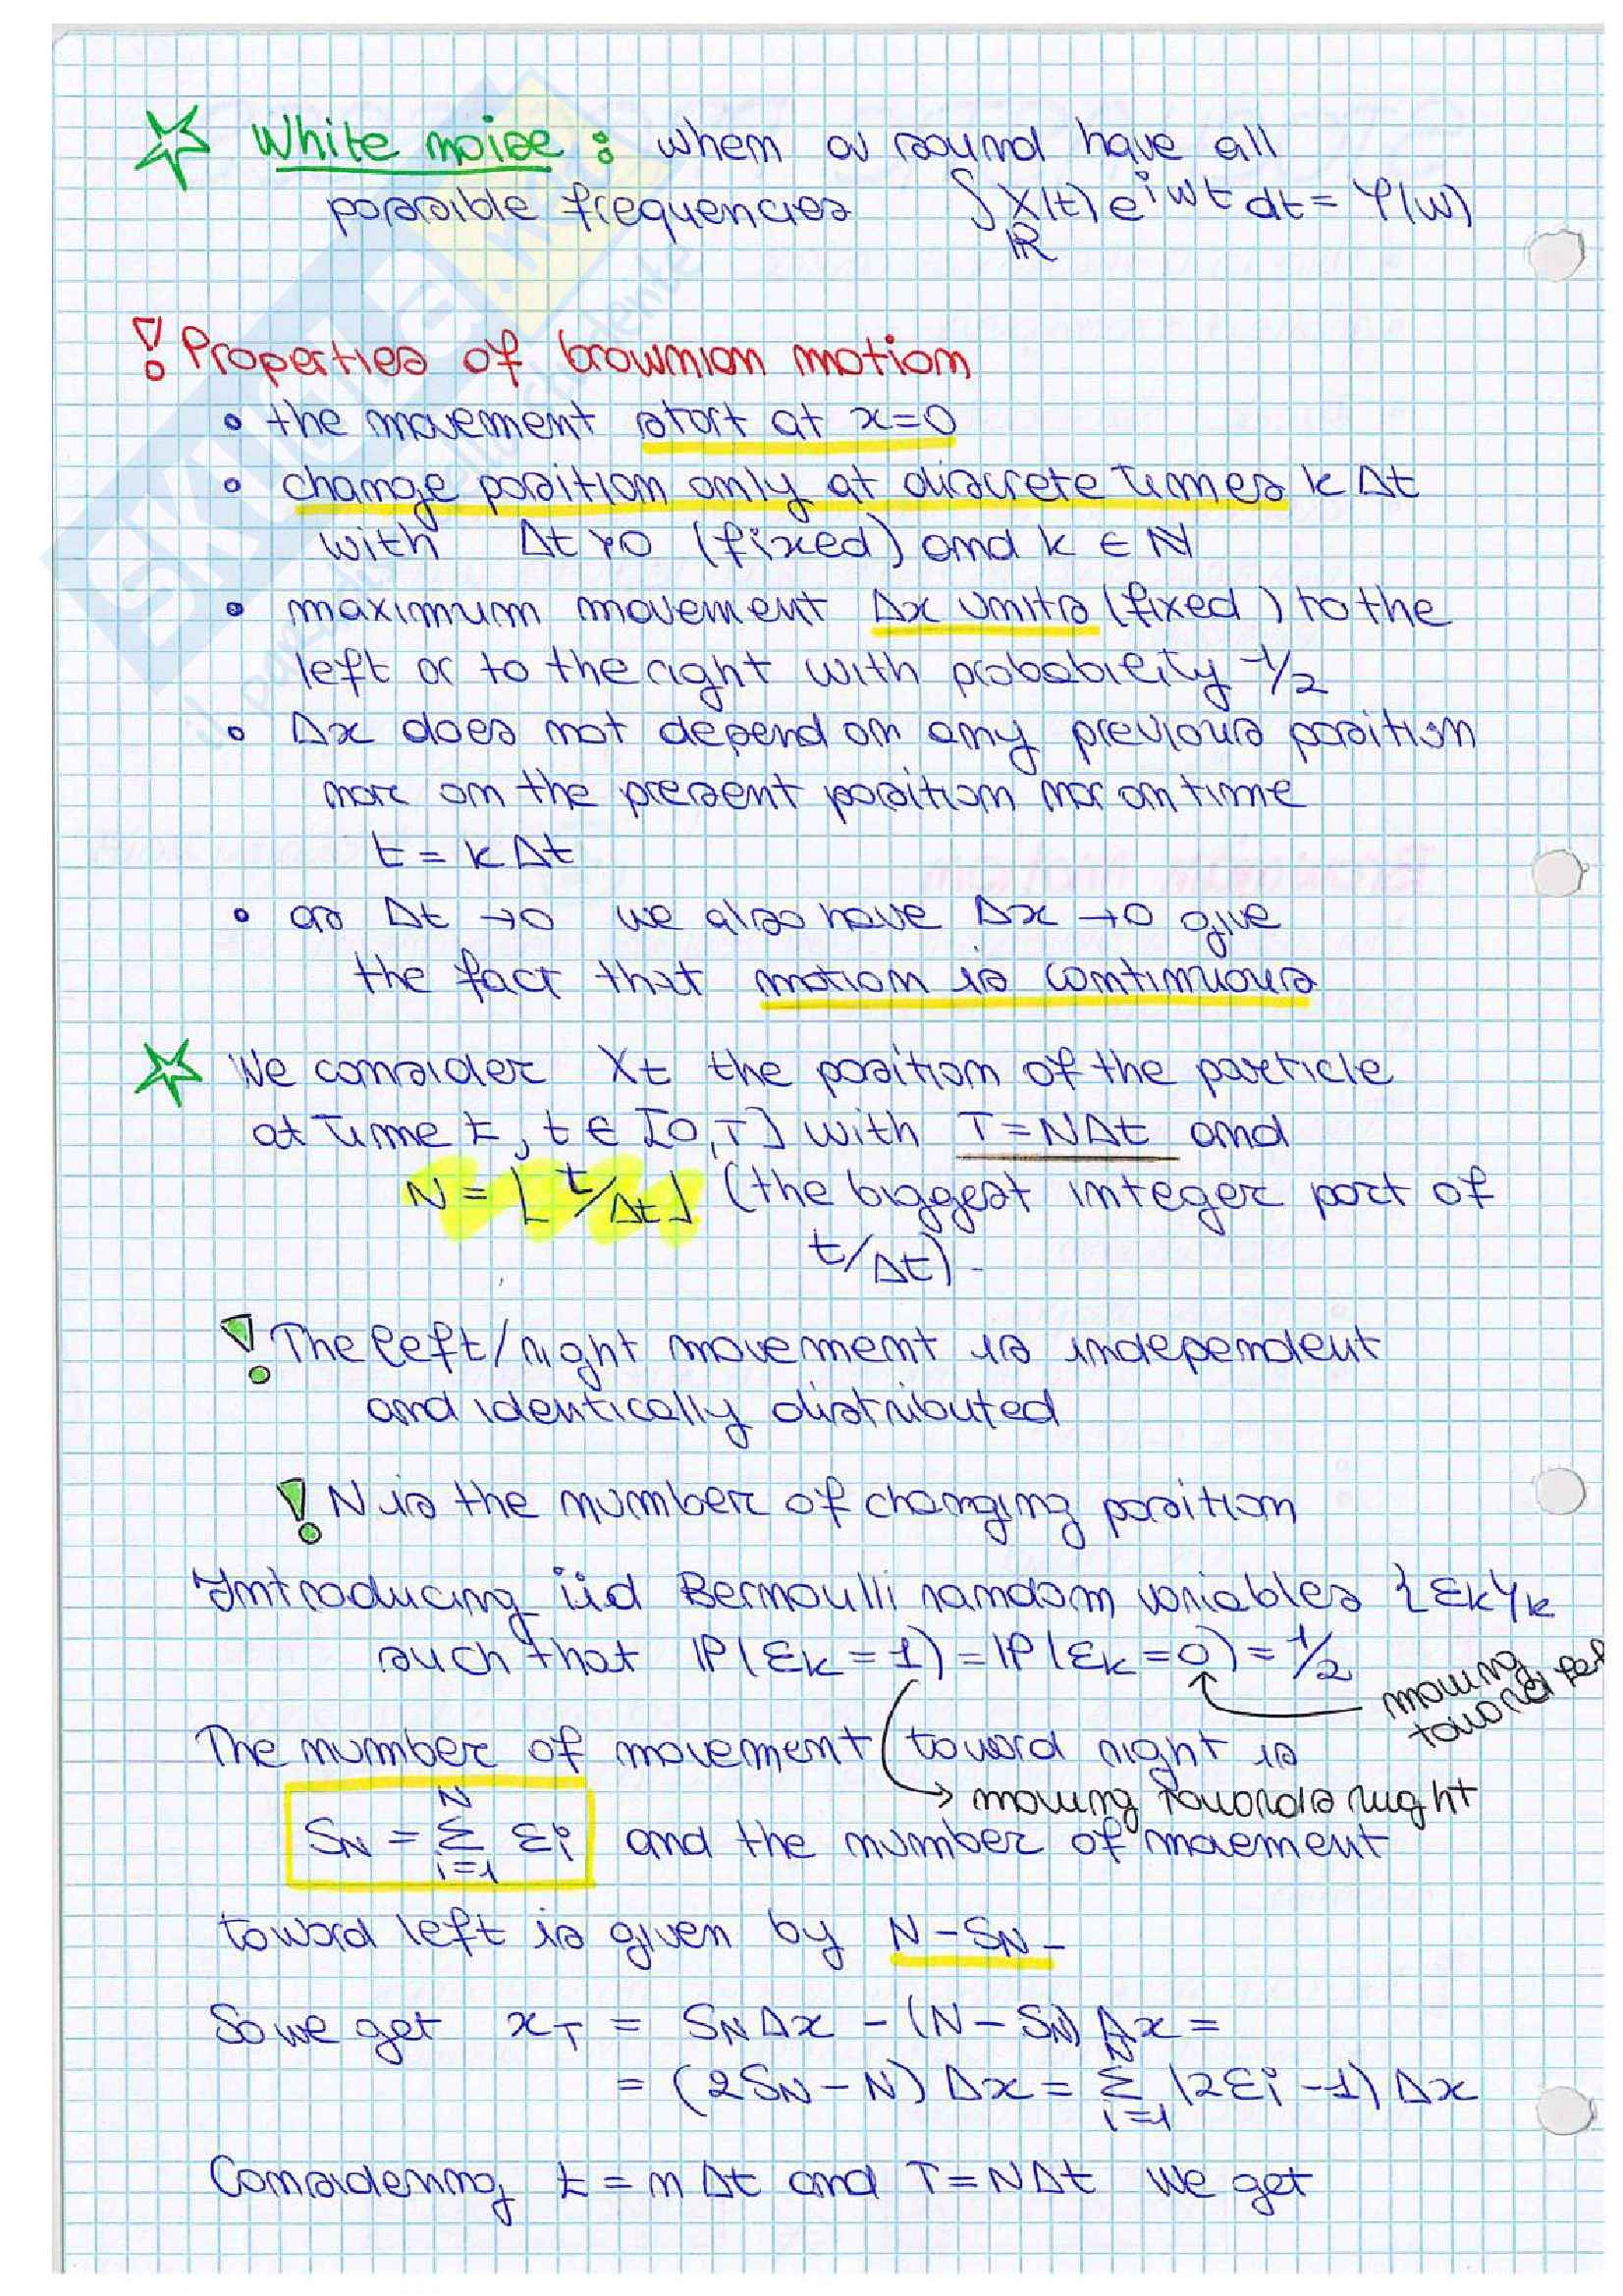 White noise : when a sound have all
possible frequencies ∫ℝ X(t) e^{iωt} dt = φ(ω)
! Properties of brownian motion
• the movement start at x=0
• change position only at discrete times kΔt
with Δt>0 (fixed) and k ∈ N
• maximum movement Δx units (fixed) to the
left or to the right with probability 1/2
• Δx does not depend on any previous position
nor on the present position nor on time
t = kΔt
• as Δt →0 we also have Δx →0 give
the fact that motion is continuous
We consider Xt the position of the particle
at time t, t ∈ [0,T] with T=NΔt and
N = ⌊t/Δt⌋ (the biggest integer part of
t/Δt).
! The left/right movement is independent
and identically distributed
! N is the number of changing position
Introducing iid Bernoulli random variables {εk}k
such that P(εk=1)=P(εk=0)=1/2
moving
toward
The number of movement toward right is
→ moving towards right
SN = Σ_{i=1}^{N} εi and the number of movement
toward left is given by N-SN-
So we get xT = SNΔx - (N-SN)Δx =
= (2SN-N) Δx = Σ_{i=1}^{N} (2εi-1) Δx
Considering t = nΔt and T=NΔt we get
SKUOLA